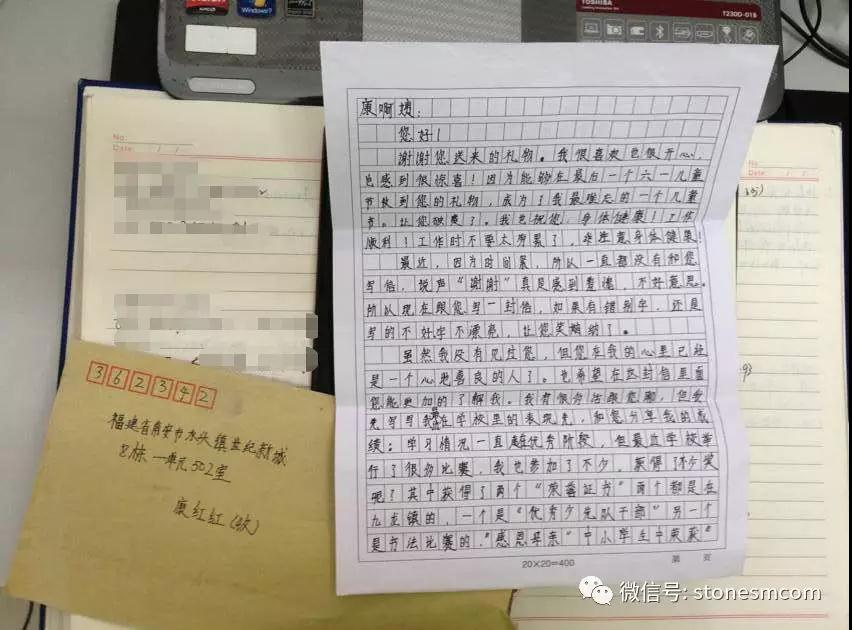 Windows 7
TOSHIBA
T230D-01B
No.
Date: / /
No.
Date: / /
康啊姨：
您好！
谢谢您送来的礼物。我很喜欢也很开心，
也感到很惊喜！因为能够在最后一个六一儿童
节收到您的礼物，成为了我最难忘的一个儿童
节。让您破费了。我也祝您，身体健康！工作
顺利！工作时不要太劳累了，要注意身体健康！
最近，因为时间紧，所以一直都没有和您
写信，说声“谢谢”真是感到羞愧，不好意思。
所以现在跟您写一封信，如果有错别字，还是
写的不好字不漂亮，让您笑嫡纳了。
虽然我没有见过您，但您在我的心里已经
是一个心地善良的人了。也希望在这封信里面
您能更加的了解我。我有很多话跟您聊，但我
先写写我最近在学校里的表现先，和您分享我的成
绩：学习情况一直是优秀阶段，但最近学校举
行了很多比赛，我也参加了不少，获得了不少奖
呢？其中获得了两个“荣誉证书”两个都是在
九龙镇的，一个是“优秀少先队干部”另一个
是书法比赛的，“感恩母亲”中小学生中荣获“
20×20=400
第 页
362342
福建省南安市水头镇世纪新城
8栋一单元502室
康红红（收）
微信号: stonesmcom